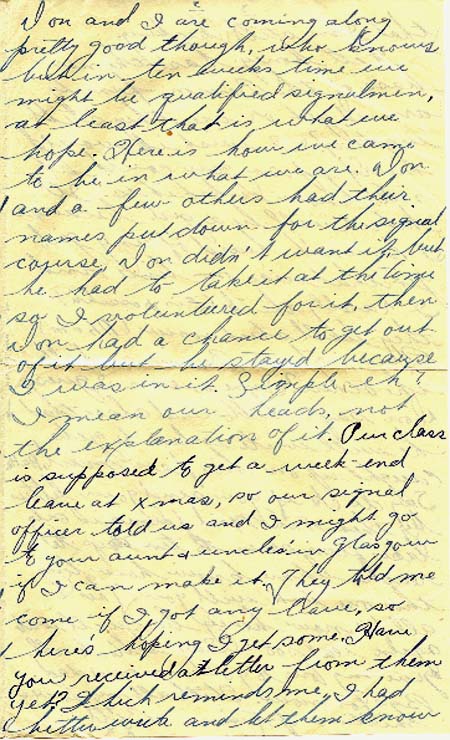 Don and I are coming along
pretty good though, who knows
but in ten weeks time we
might be qualified signalmen,
at least that is what we
hope. Here is how we came
to be in what we are. Don
and a few others had their
names put down for the signal
course, Don didn't want it, but
he had to take it at the time
so I volunteered for it, then
Don had a chance to get out
of it but he stayed because
I was in it. Simple eh?
I mean our heads, not
the explanation of it. Our class
is supposed to get a week-end
leave at Xmas, so our signal
officer told us and I might go
to your aunt & uncles' in Glasgow
if I can make it. They told me
come if I got any leave, so
here's hoping I get some. Have
you received a letter from them
yet? Which reminds me, I had
better write and let them know